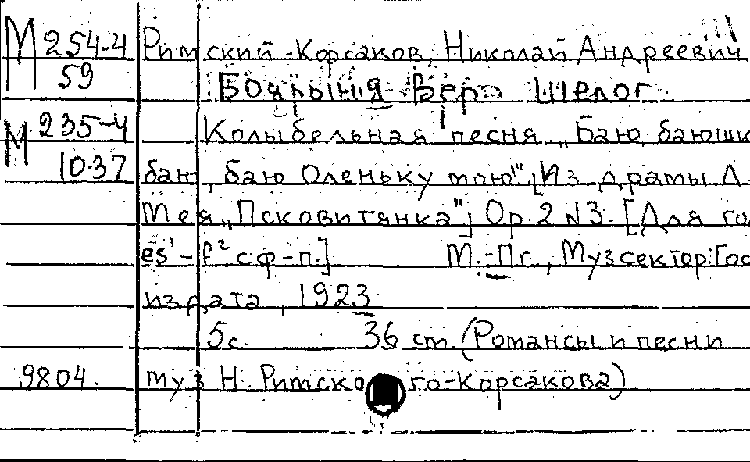 М 254-4 Римский-Корсаков, Николай Андреевич
59 Боярыня Вера Шелога.
М 235-4 Колыбельная песня „Баю, баюшк
1037 баю, баю Оленьку мою" [Из драмы Л.
Мея „Псковитянка"] Ор. 2 N3. [Для го
es¹-f² с ф-п.] М.-Пг., Музсектор Гос
издата, 1923
5с. 36 ст. (Романсы и песни
9804. муз Н. Римского-Корсакова)